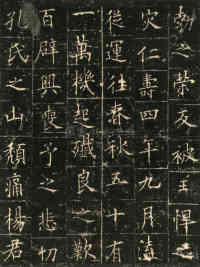 勅之榮友被王悍之
灾仁壽四年九月遘
從運往春秋五十有
一萬機起殲良之歎
百辟興喪予之悲切
孔氏之山頹痛楊君